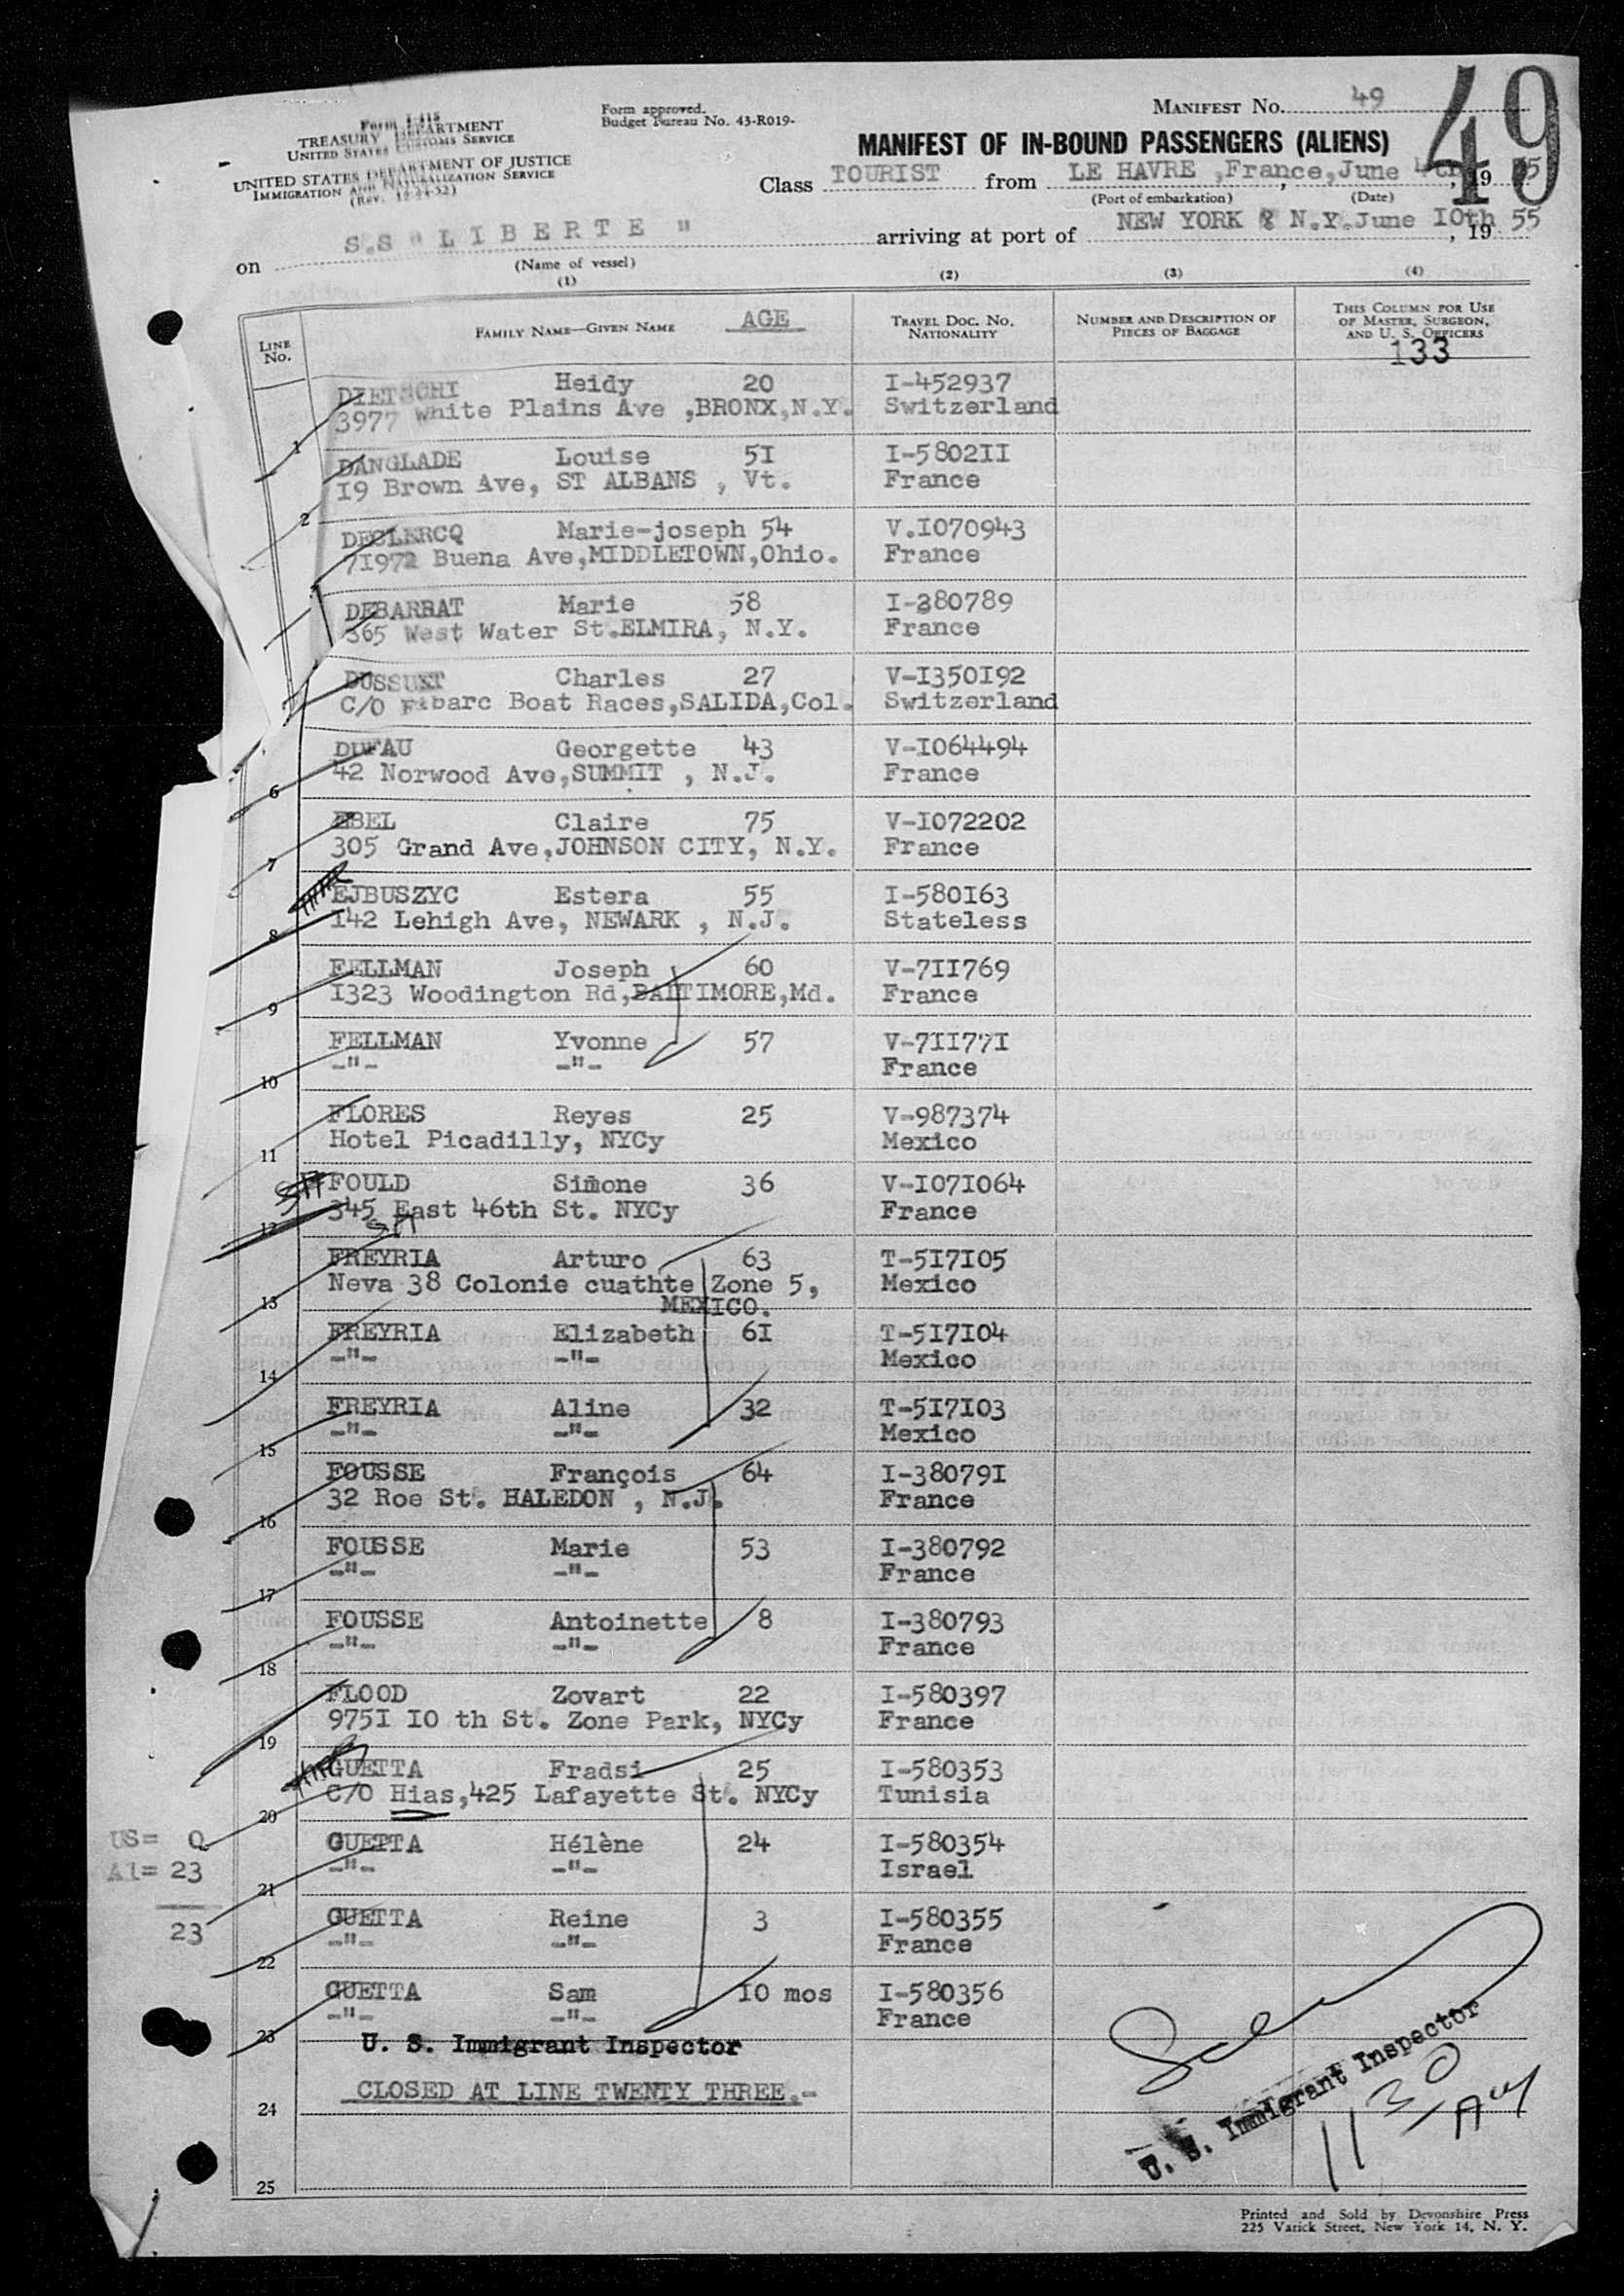 Form I-418
TREASURY DEPARTMENT
UNITED STATES CUSTOMS SERVICE
UNITED STATES DEPARTMENT OF JUSTICE
IMMIGRATION AND NATURALIZATION SERVICE
(Rev. 12-24-52)
Form approved.
Budget Bureau No. 43-R019-
MANIFEST NO. 49
49
MANIFEST OF IN-BOUND PASSENGERS (ALIENS)
Class TOURIST from LE HAVRE ,France, June 4th, 19 55
(Port of embarkation) (Date)
on S.S " L I B E R T E " arriving at port of NEW YORK N.Y. June I0th, 19 55
(Name of vessel)
(1) (2) (3) (4)
LINE No. FAMILY NAME—GIVEN NAME AGE TRAVEL DOC. NO. NATIONALITY NUMBER AND DESCRIPTION OF PIECES OF BAGGAGE THIS COLUMN FOR USE OF MASTER, SURGEON, AND U. S. OFFICERS
133
DIETSCHI Heidy 20 I-452937
3977 White Plains Ave ,BRONX,N.Y. Switzerland
1
DANGLADE Louise 5I I-5802II
I9 Brown Ave, ST ALBANS , Vt. France
2
DECLERCQ Marie-joseph 54 V.I070943
7I972 Buena Ave,MIDDLETOWN,Ohio. France
DEBARBAT Marie 58 I-380789
365 West Water St.ELMIRA, N.Y. France
Charles 27 V-I350I92
C/O Boat Races,SALIDA,Col. Switzerland
DUFAU Georgette 43 V-I064494
42 Norwood Ave,SUMMIT , N.J. France
6
EBEL Claire 75 V-I072202
305 Grand Ave,JOHNSON CITY, N.Y. France
7
EJBUSZYC Estera 55 I-580I63
I42 Lehigh Ave, NEWARK , N.J. Stateless
8
FELLMAN Joseph 60 V-7II769
I323 Woodington Rd,BALTIMORE,Md. France
9
FELLMAN Yvonne 57 V-7II77I
-"- -"- France
10
FLORES Reyes 25 V-987374
Hotel Picadilly, NYCy Mexico
11
FOULD Simone 36 V-I07I064
345 East 46th St. NYCy France
12
FREYRIA Arturo 63 T-5I7I05
Neva 38 Colonie cuathte Zone 5, Mexico
MEXICO.
13
FREYRIA Elizabeth 6I T-5I7I04
-"- -"- Mexico
14
FREYRIA Aline 32 T-5I7I03
-"- -"- Mexico
15
FOUSSE François 64 I-38079I
32 Roe St. HALEDON , N.J. France
16
FOUSSE Marie 53 I-380792
-"- -"- France
17
FOUSSE Antoinette 8 I-380793
-"- -"- France
18
FLOOD Zovart 22 I-580397
975I I0 th St. Zone Park, NYCy France
19
GUETTA Fradsi 25 I-580353
C/O Hias,425 Lafayette St. NYCy Tunisia
20
US= 0
GUETTA Hélène 24 I-580354
Al= 23
-"- -"- Israel
21
23
GUETTA Reine 3 I-580355
-"- -"- France
22
GUETTA Sam I0 mos I-580356
-"- -"- France
23
U. S. Immigrant Inspector
CLOSED AT LINE TWENTY THREE.-
24
U. S. Immigrant Inspector
1130
25
Printed and Sold by Devonshire Press
225 Varick Street, New York 14, N. Y.